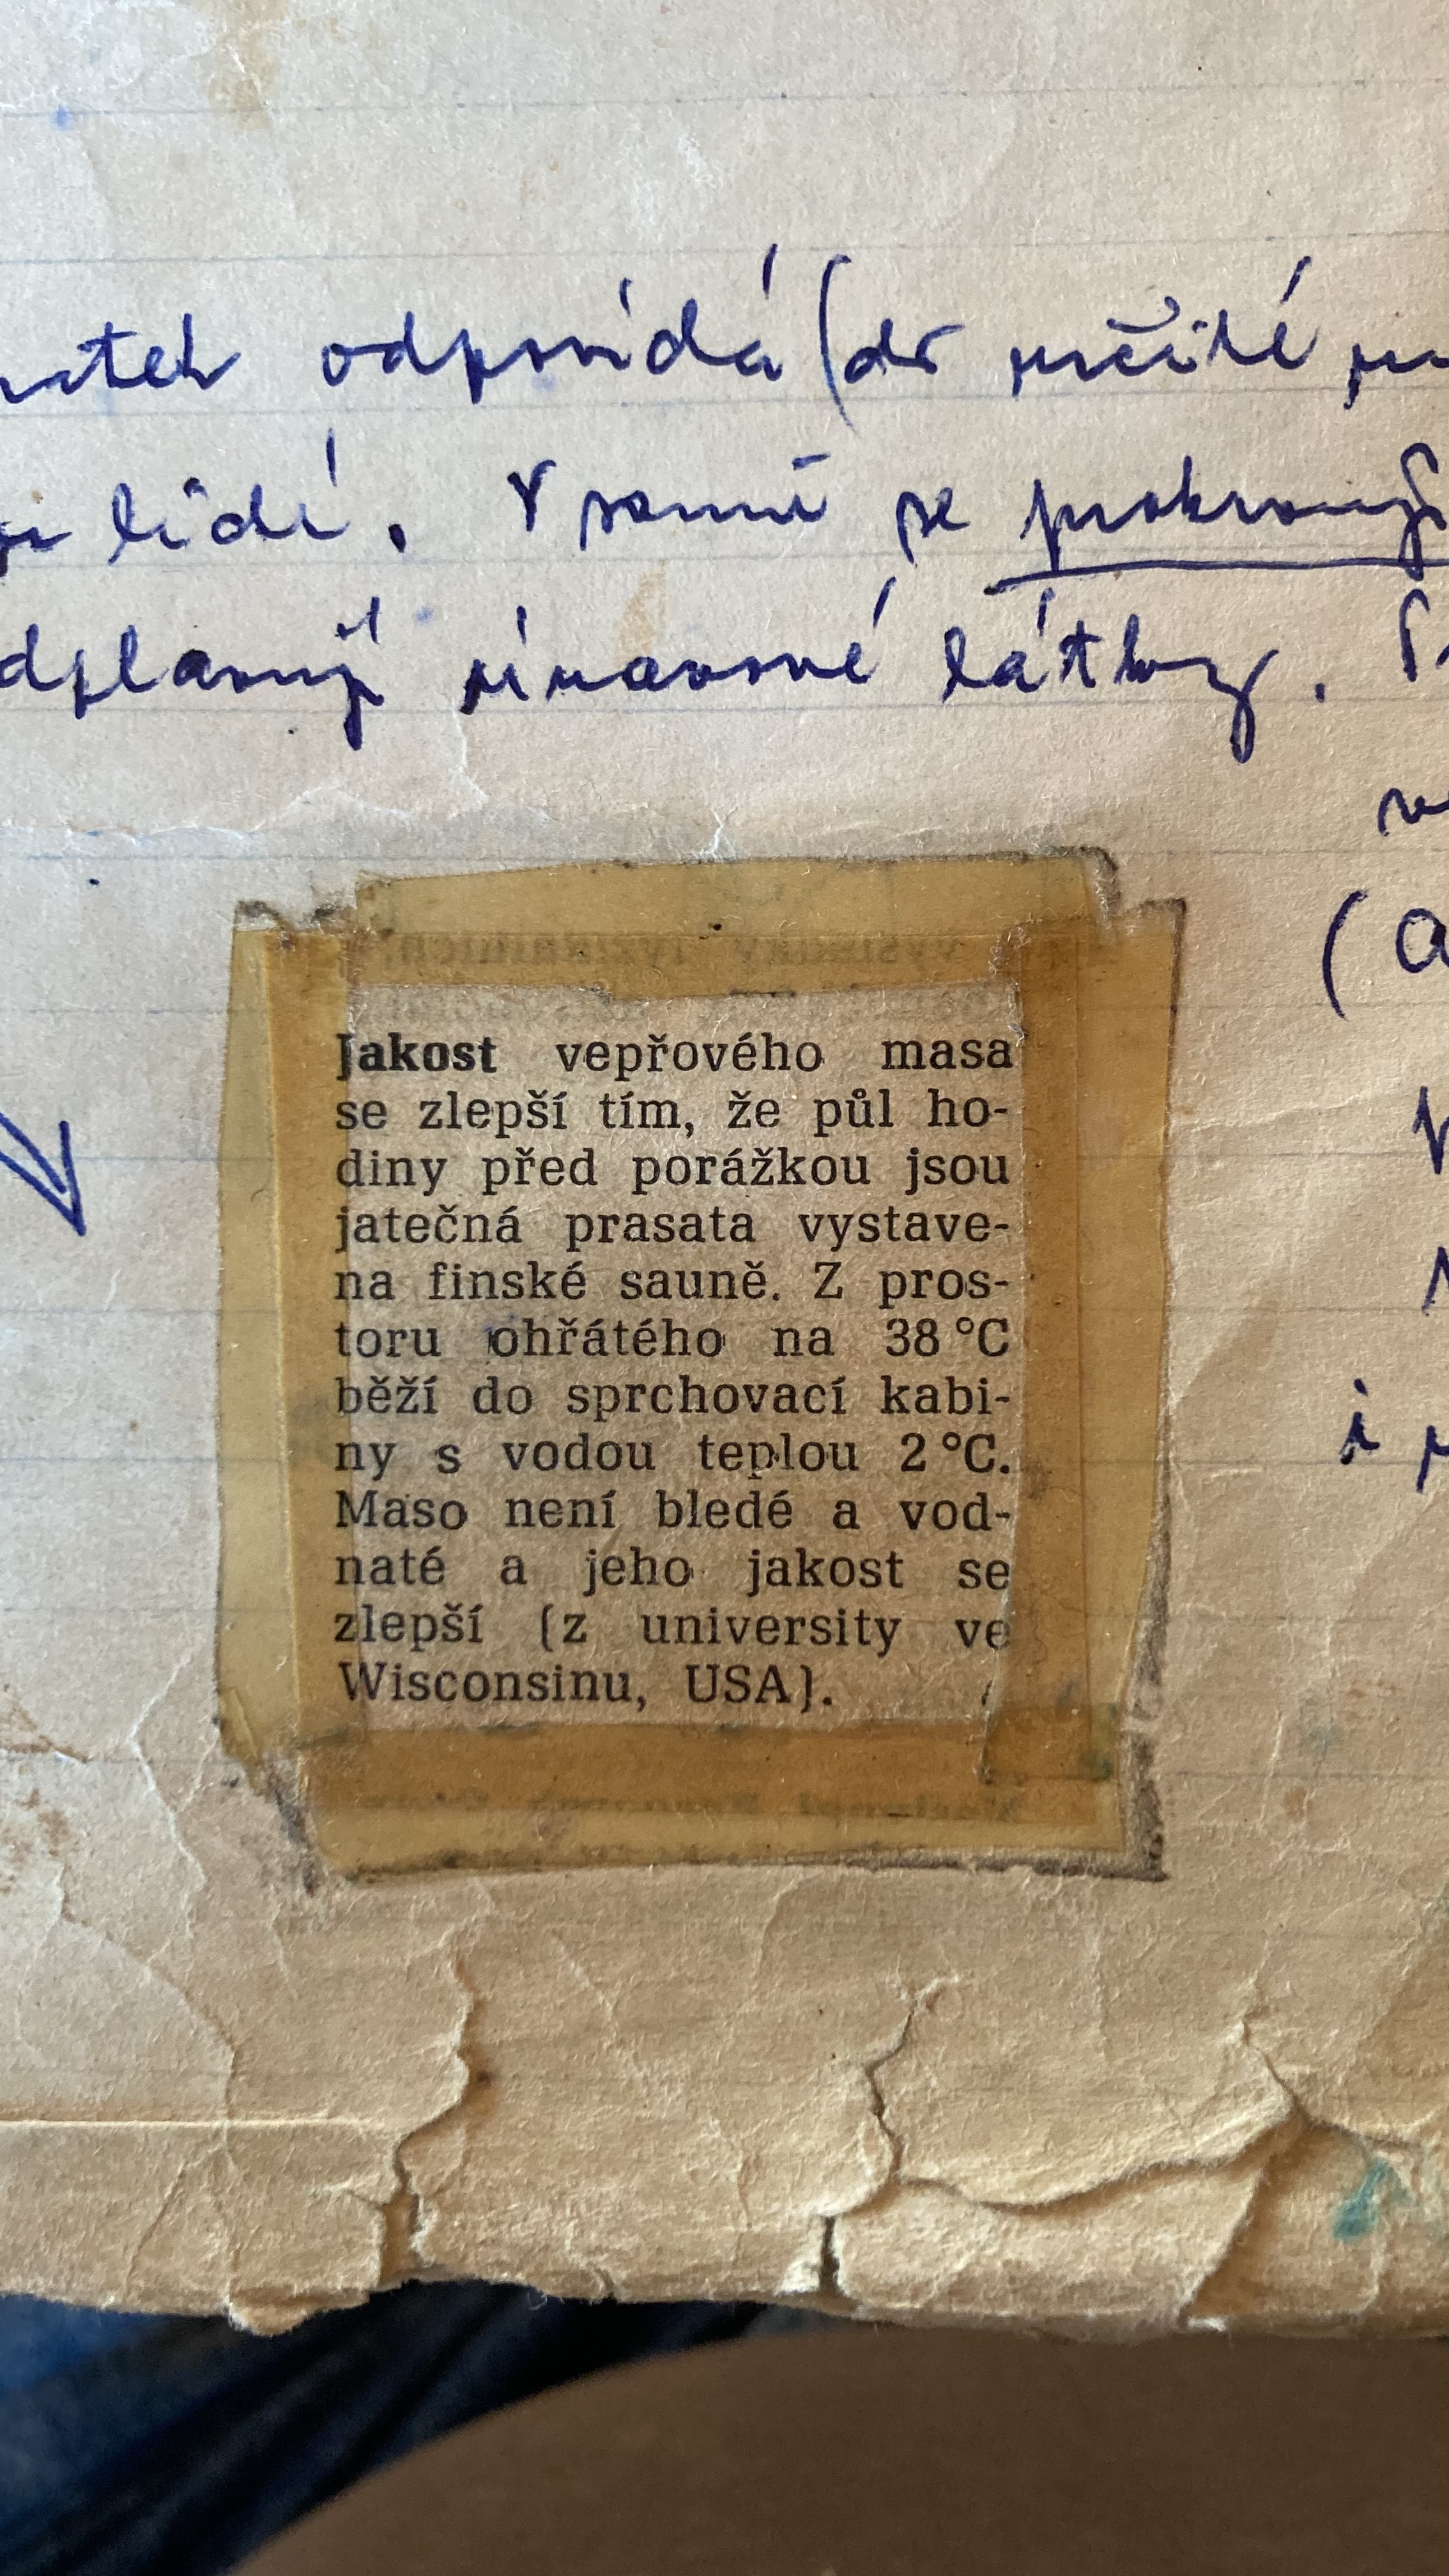 odpovídá (do určité
lidé. V sauně se prokrvují
odplavují únavové látky.
(
Jakost vepřového masa
se zlepší tím, že půl ho-
diny před porážkou jsou
jatečná prasata vystave-
na finské sauně. Z pros-
toru ohřátého na 38 °C
běží do sprchovací kabi-
ny s vodou teplou 2 °C.
Maso není bledé a vod-
naté a jeho jakost se
zlepší (z university ve
Wisconsinu, USA).
i